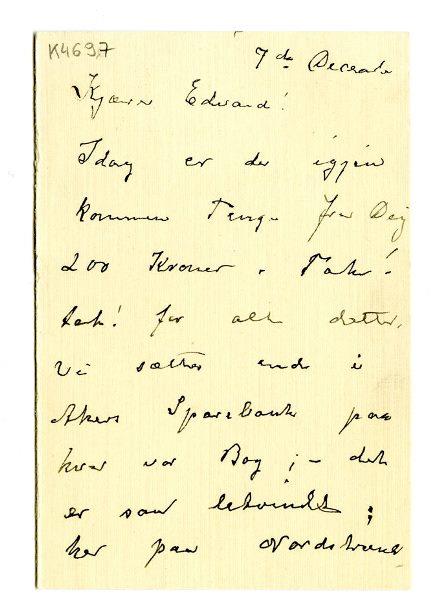 K4697
7de December
Kjære Edvard!
Idag er der igjen
kommen Penge fra Dig
200 Kroner. Tak!
tak! for alt dette.
Vi sættes ende i
Akers Sparebank paa
hver vor Bog; – det
er saa letvindt;
her paa Nordstrand